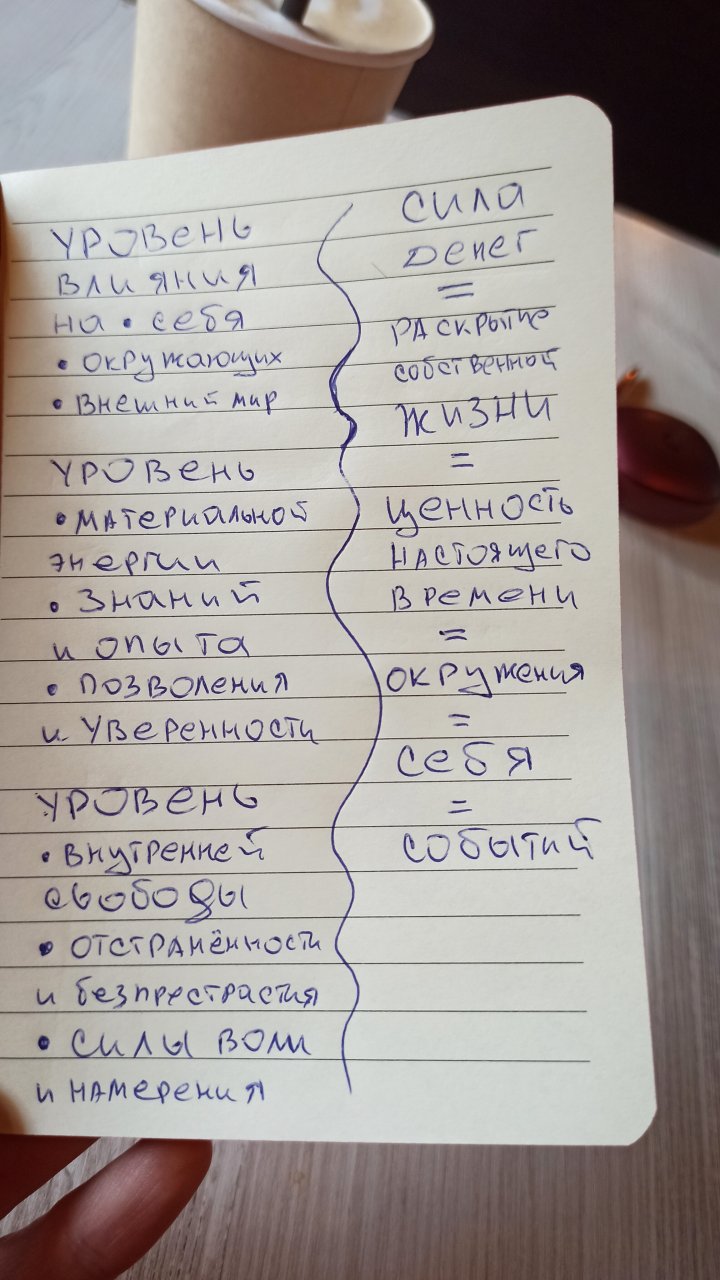 УРОВЕНЬ
ВЛИЯНИЯ
НА • СЕБЯ
• ОКРУЖАЮЩИХ
• ВНЕШНИЙ МИР
УРОВЕНЬ
• МАТЕРИАЛЬНОЙ
ЭНЕРГИИ
• ЗНАНИЙ
И ОПЫТА
• ПОЗВОЛЕНИЯ
И УВЕРЕННОСТИ
УРОВЕНЬ
• ВНУТРЕННЕЙ
СВОБОДЫ
• ОТСТРАНЁННОСТИ
И БЕЗПРЕСТРАСТИЯ
• СИЛЫ ВОЛИ
И НАМЕРЕНИЯ
СИЛА
ДЕНЕГ
=
РАСКРЫТИЕ
СОБСТВЕННОЙ
ЖИЗНИ
=
ЦЕННОСТЬ
НАСТОЯЩЕГО
ВРЕМЕНИ
=
ОКРУЖЕНИЯ
=
СЕБЯ
=
СОБЫТИЙ